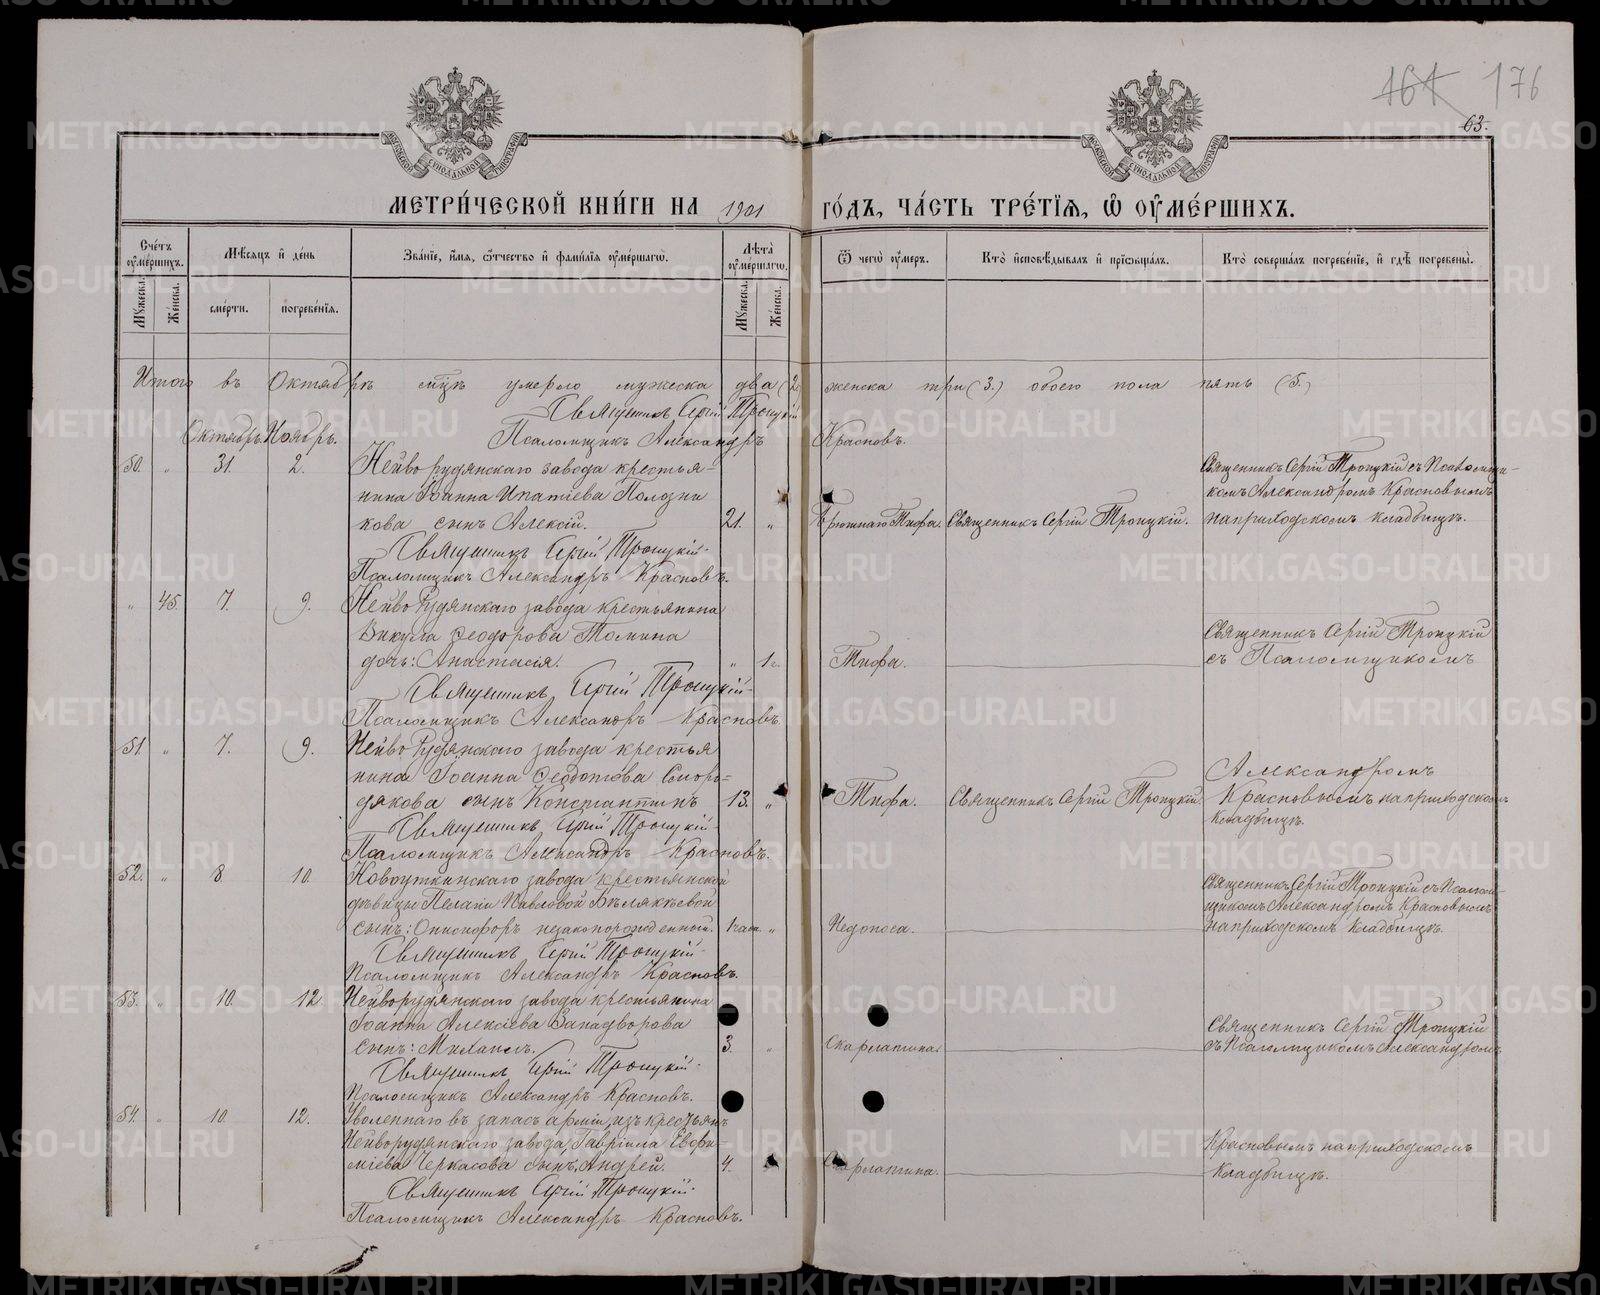 164 176
63.
МЕТРИ́ЧЕСКОЙ КНИ́ГИ НА 1901 ГО́ДЪ, ЧА́СТЬ ТРЕ́ТІѦ, Ѡ ОУ҆МЕ́РШИХЪ.
Сче́тъ оу҆ме́ршихъ.
Мѣ́сяцъ и҆ де́нь
Зва́ніе, и҆́мя, ѻ҆́тчество и҆ фами́лія оу҆ме́ршагѡ.
Лѣ́та оу҆ме́ршагѡ.
Ѿ чегѡ̀ оу҆́меръ.
Кто̀ и҆сповѣ́дывалъ и҆ прїѡбща́лъ.
Кто̀ соверша́лъ погребе́ніе, и҆ гдѣ̀ погребены̀.
Мꙋ́жеска.
Же́нска.
сме́рти.
погребе́нія.
Мꙋ́жеска.
Же́нска.
Итого въ Октябрѣ мц̃ѣ умерло мужеска два (2) женска три (3.) обоего пола пять (5.)
Священникъ Сергій Троицкій
Псаломщикъ Александръ Красновъ.
Октябрь. Ноябрь.
50. " 31. 2. Нейворудянскаго завода крестья-
нина Іоанна Ипатіева Полозни
кова сынъ Алексій. 21. " Брюшнаго Тифа. Священникъ Сергій Троицкій.
Священникъ Сергій Троицкій съ Псаломщи-
комъ Александромъ Красновымъ
на приходскомъ кладбищѣ.
Священникъ Сергій Троицкій.
Псаломщикъ Александръ Красновъ.
" 45. 7. 9. Нейворудянскаго завода крестьянина
Викула Ѳеодорова Томина
дочь: Анастасія. " 1 г. Тифа.
Священникъ Сергій Троицкій
съ Псаломщикомъ
Священникъ Сергій Троицкій.
Псаломщикъ Александръ Красновъ.
51. " 7. 9. Нейворудянскаго завода крестья
нина Іоанна Ѳеодотова Сморо-
дякова сынъ Константинъ 13. " Тифа. Священникъ Сергій Троицкій.
Александромъ
Красновымъ на приходскомъ
кладбищѣ.
Священникъ Сергій Троицкій.
Псаломщикъ Александръ Красновъ.
52. " 8. 10. Новоуткинскаго завода крестьянской
дѣвицы Пелагіи Павловой Бѣлякѣевой
сынъ: Онисифоръ незаконорожденный. " Недоноса.
Священникъ Сергій Троицкій съ Псалом
щикомъ Александромъ Красновымъ
на приходскомъ кладбищѣ.
Священникъ Сергій Троицкій.
Псаломщикъ Александръ Красновъ.
53. " 10. 12. Нейворудянскаго завода крестьянина
Іоанна Алексіева Западворова
сынъ: Михаилъ. 3. " Скарлатина.
Священникъ Сергій Троицкій
съ Псаломщикомъ Александромъ
Священникъ Сергій Троицкій.
Псаломщикъ Александръ Красновъ.
54. " 10. 12. Уволеннаго въ запасъ арміи, изъ крестьянъ
Нейворудянскаго завода, Гавріила Евфи
міева Черкасова сынъ, Андрей. 4. Скарлатина.
Красновымъ на приходскомъ
кладбищѣ.
Священникъ Сергій Троицкій.
Псаломщикъ Александръ Красновъ.
METRIKI.GASO-URAL.RU